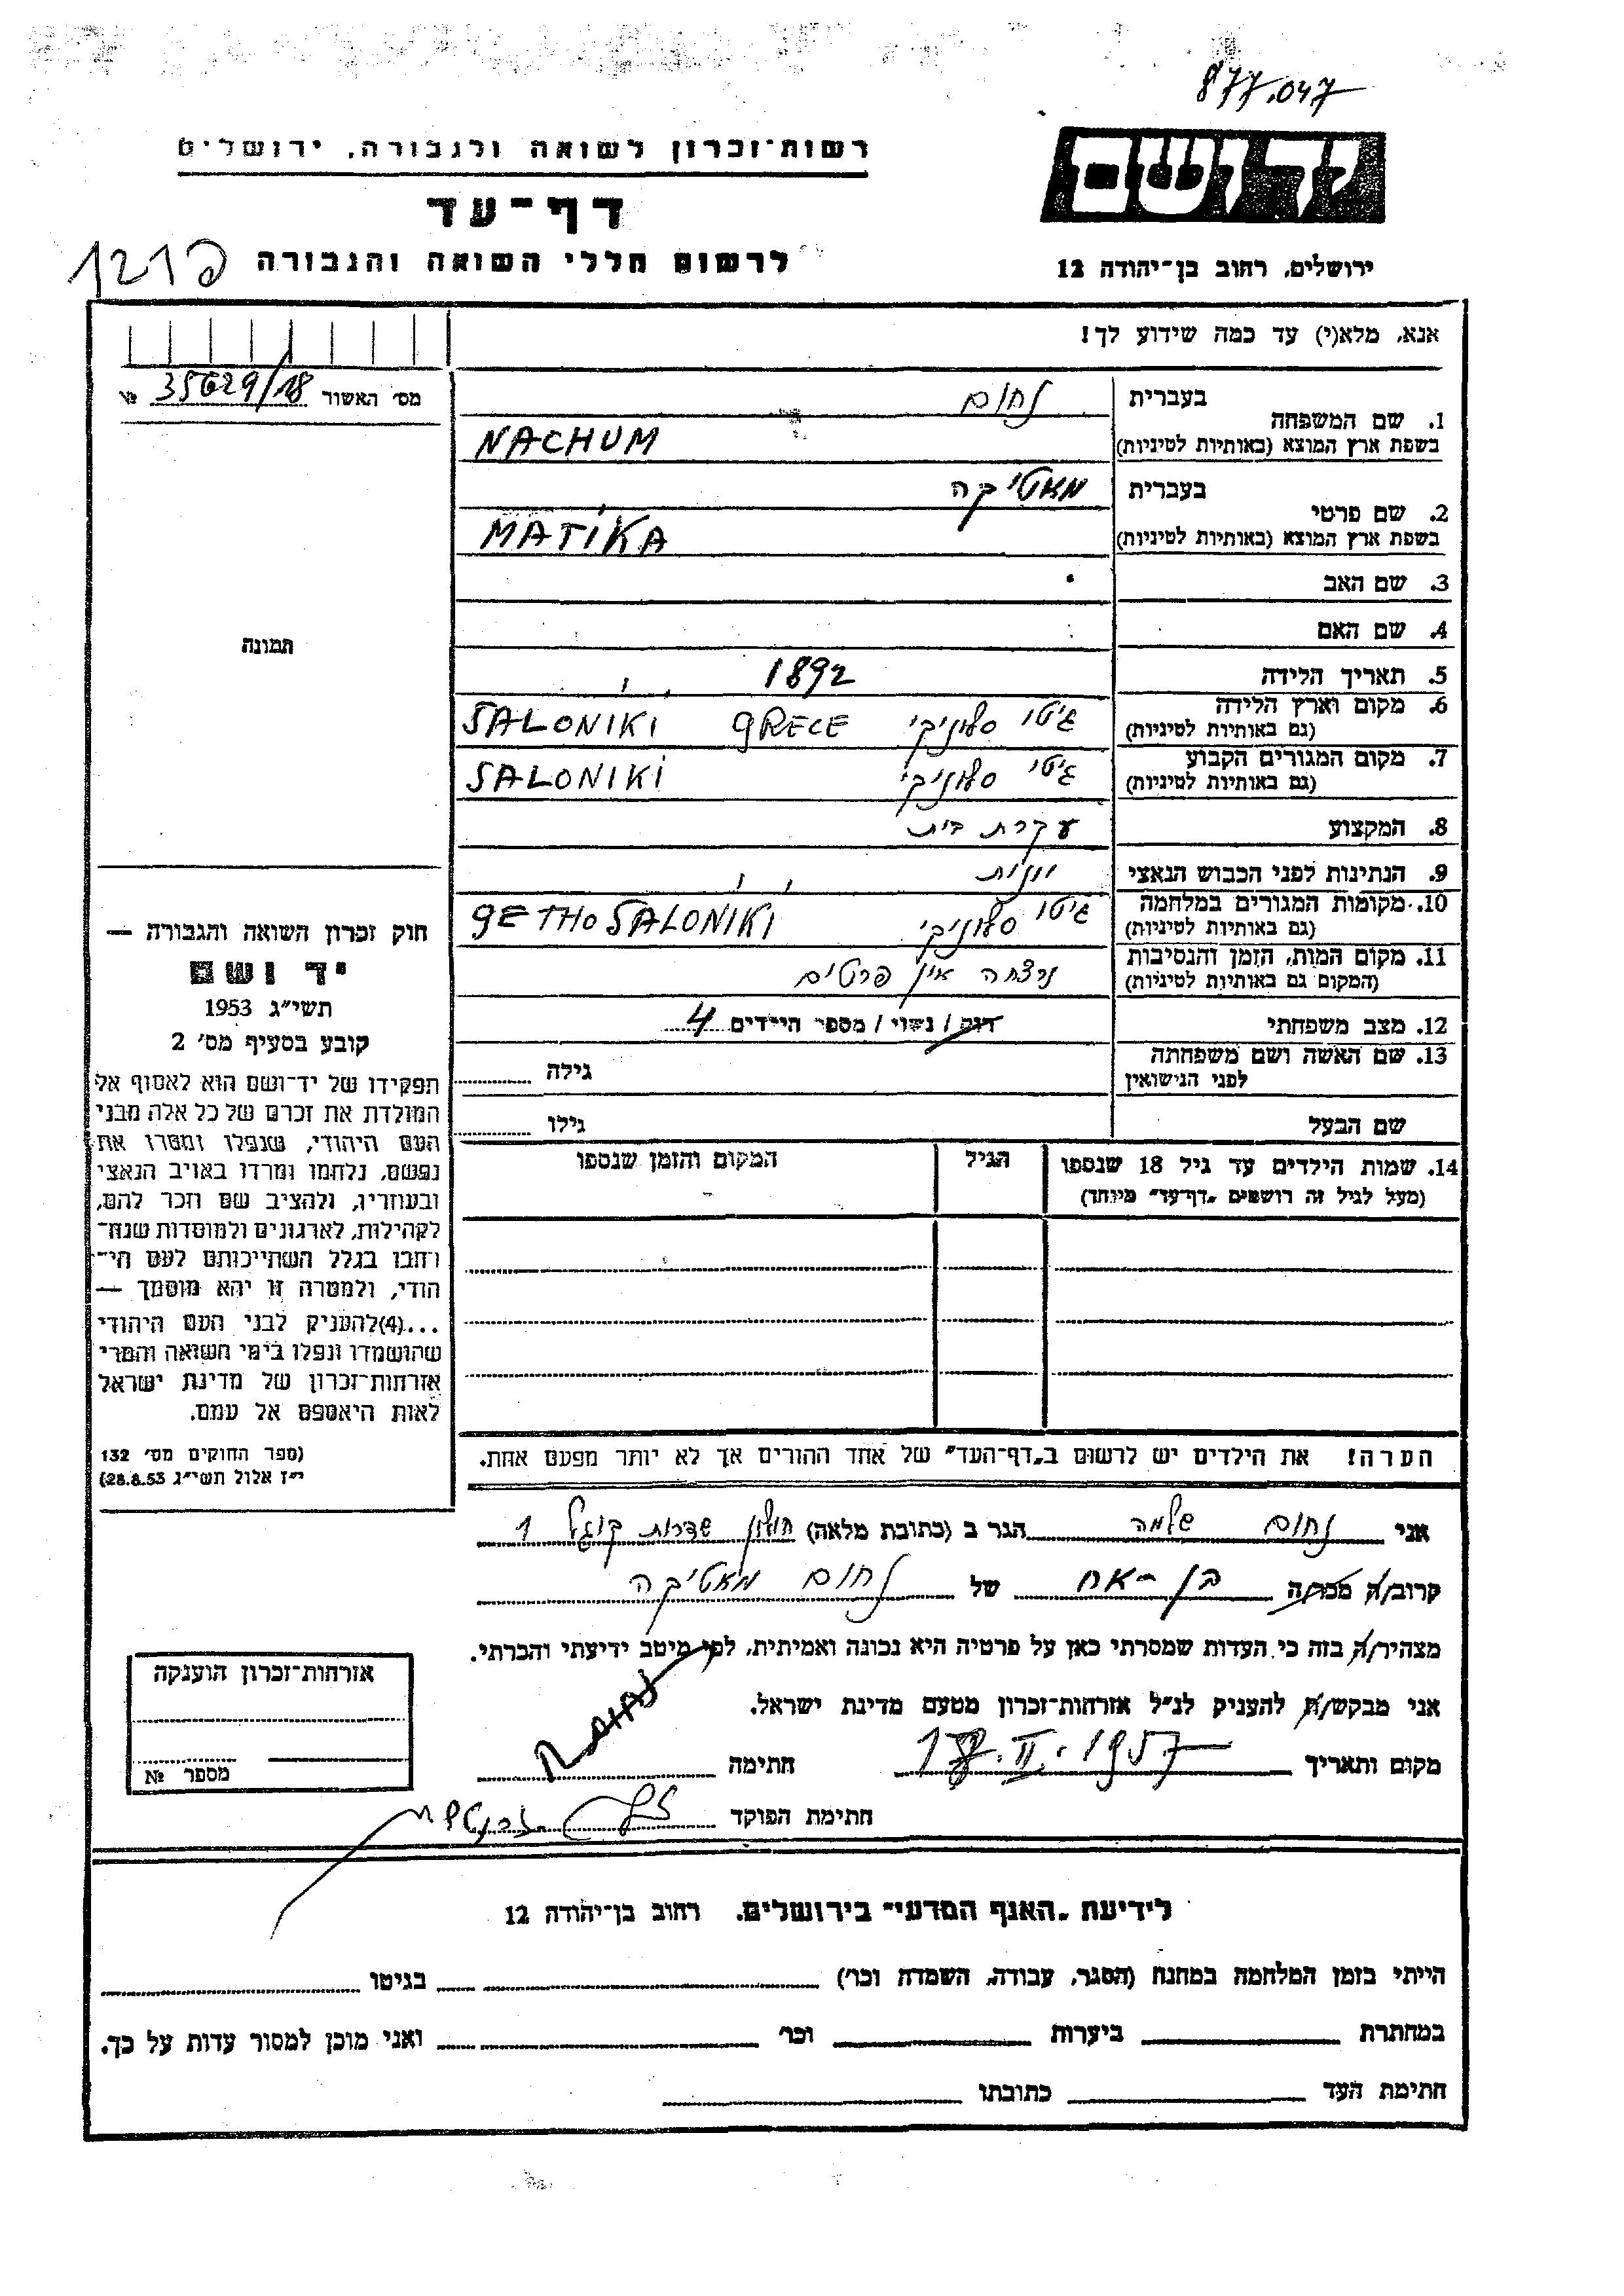 877.047
רשות־זכרון לשואה ולגבורה, ירושלים
יד ושם
דף־עד
לרשום חללי השואה והגבורה
ירושלים, רחוב בן־יהודה 12
אנא, מלא(י) עד כמה שידוע לך!
מס׳ האשור 35629/18 №
בעברית נחום
1. שם המשפחה
בשפת ארץ המוצא (באותיות לטיניות) NACHUM
בעברית מאטיקה
2. שם פרטי
בשפת ארץ המוצא (באותיות לטיניות) MATIKA
3. שם האב
4. שם האם
תמונה
5. תאריך הלידה 1892
6. מקום וארץ הלידה
(גם באותיות לטיניות) גיטו סלוניקי GRECE SALONIKI
7. מקום המגורים הקבוע
(גם באותיות לטיניות) גיטו סלוניקי SALONIKI
8. המקצוע עקרת בית
9. הנתינות לפני הכבוש הנאצי יוונית
10. מקומות המגורים במלחמה
(גם באותיות לטיניות) גיטו סלוניקי GETHO SALONIKI
11. מקום המות, הזמן והנסיבות
(המקום גם באותיות לטיניות) נרצחה אין פרטים
12. מצב משפחתי רווק / נשוי / מספר הילדים 4
13. שם האשה ושם משפחתה
לפני הנישואין גילה
שם הבעל גילו
14. שמות הילדים עד גיל 18 שנספו הגיל המקום והזמן שנספו
(מעל לגיל זה רושמים „דף־עד״ מיוחד)
חוק זכרון השואה והגבורה —
יד ושם
תשי״ג 1953
קובע בסעיף מס׳ 2
תפקידו של יד־ושם הוא לאסוף אל
המולדת את זכרם של כל אלה מבני
העם היהודי, שנפלו ומסרו את
נפשם, נלחמו ומרדו באויב הנאצי
ובעוזריו, ולהציב שם וזכר להם,
לקהילות, לארגונים ולמוסדות שנח־
רחבו בגלל השתייכותם לעם הי־
הודי, ולמטרה זו יהא מוסמך —
...(4)להעניק לבני העם היהודי
שהושמדו ונפלו בימי השואה והמרי
אזרחות־זכרון של מדינת ישראל
לאות היאספם אל עמם.
(ספר החוקים מס׳ 132
י״ז אלול תשי״ג 28.8.53)
הערה! את הילדים יש לרשום ב„דף־העד״ של אחד ההורים אך לא יותר מפעם אחת.
אני נחום שלמה הגר ב (כתובת מלאה) חולון שדרות קוגל 1
קרוב/ה מכר/ה בן-אח של נחום מאטיקה
מצהיר/ה בזה כי העדות שמסרתי כאן על פרטיה היא נכונה ואמיתית, לפי מיטב ידיעתי והכרתי.
אני מבקש/ת להעניק לנ״ל אזרחות־זכרון מטעם מדינת ישראל.
מקום ותאריך 18.II.1957 חתימה
חתימת הפוקד
אזרחות־זכרון הוענקה
מספר №
לידיעת „האגף המדעי״ בירושלים, רחוב בן־יהודה 12
הייתי בזמן המלחמה במחנה (הסגר, עבודה, השמדה וכו׳) בגיטו
במחתרת ביערות וכו׳ ואני מוכן למסור עדות על כך.
חתימת העד כתובתו